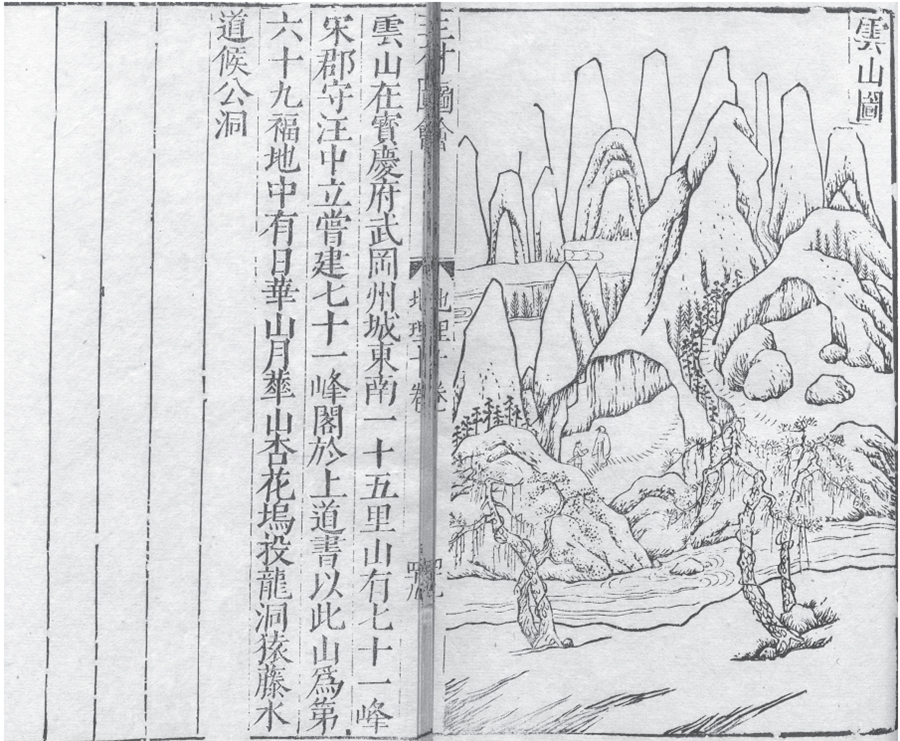 雲山圖
地理十卷
雲山在寳慶府武岡州城東南一十五里山有七十一峰
宋郡守汪中立嘗建七十一峰閣於上道書以此山爲第
六十九福地中有日華山月華山杏花塢投龍洞猿藤水
道候公洞